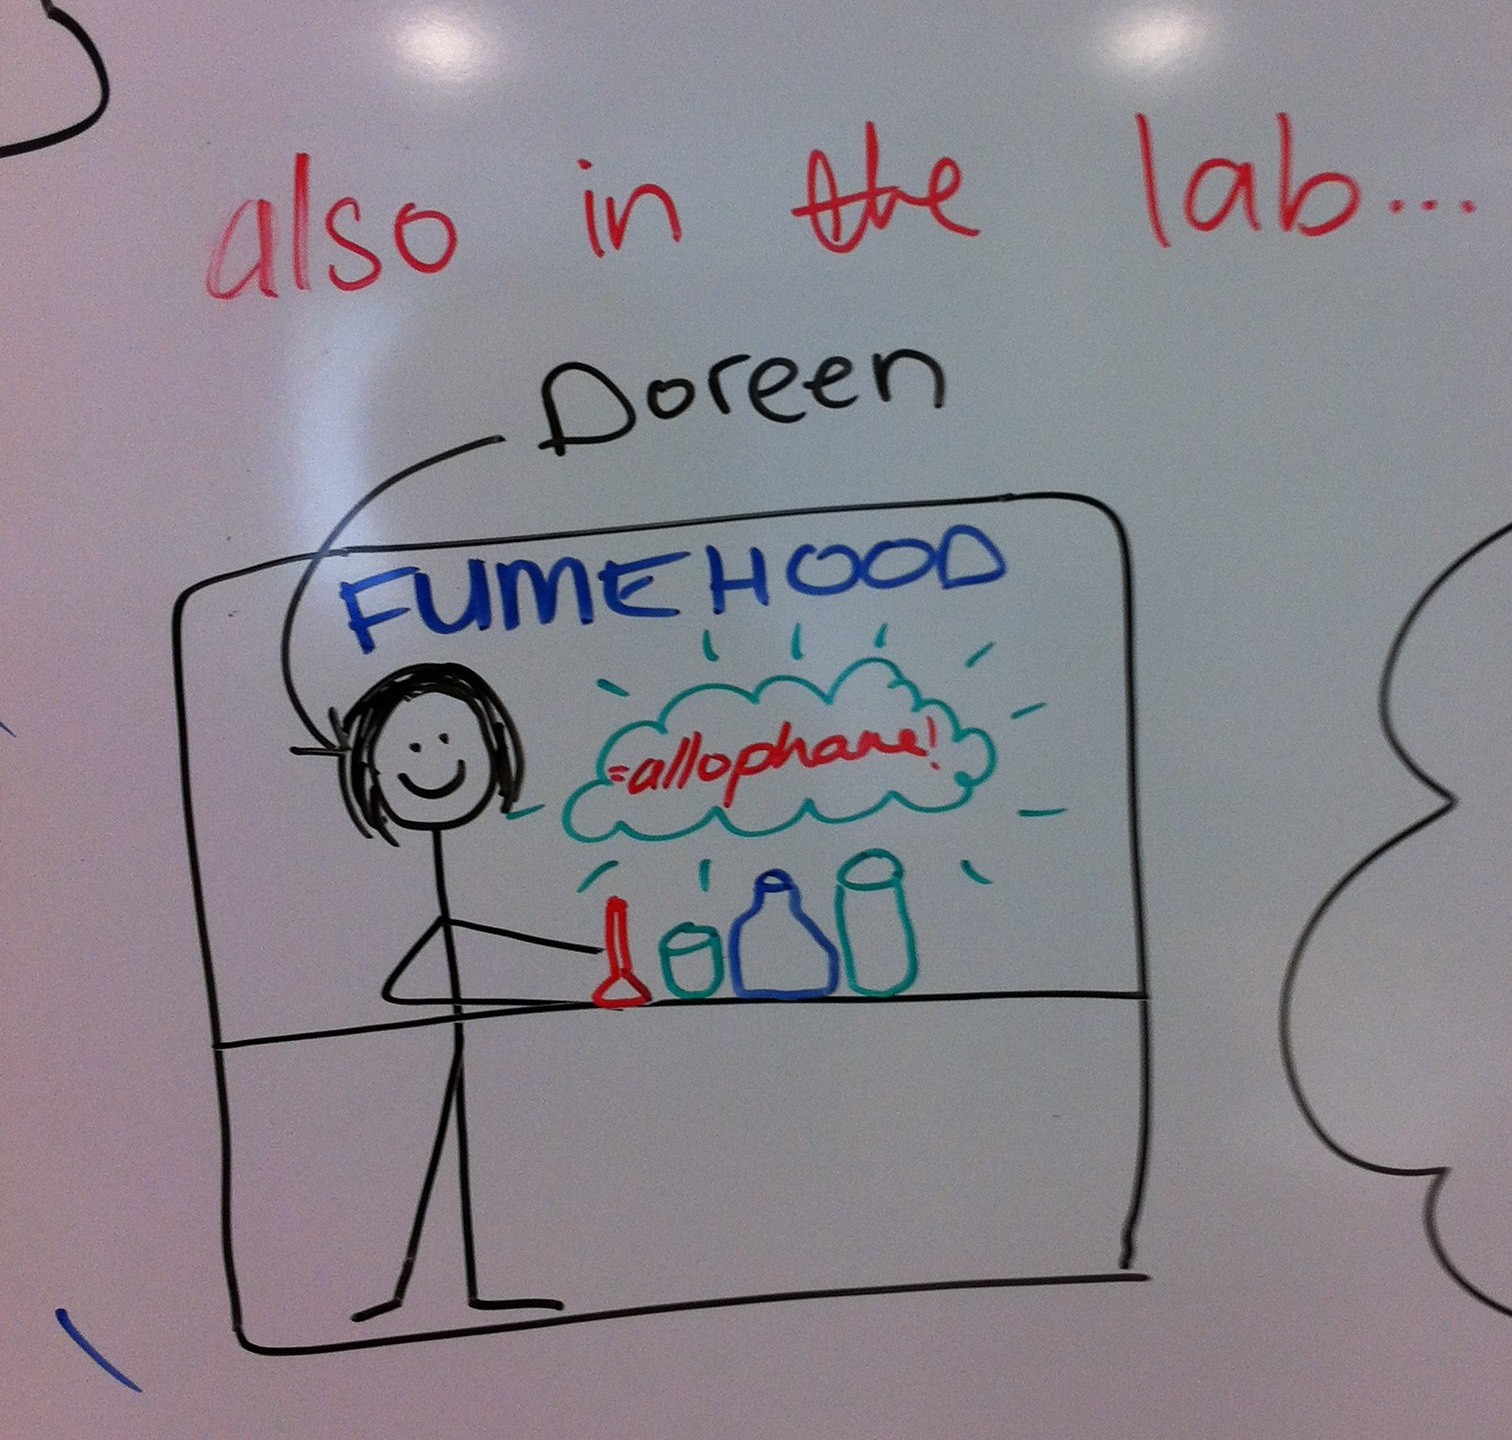 also in the lab...
Doreen
FUMEHOOD
=allophane!